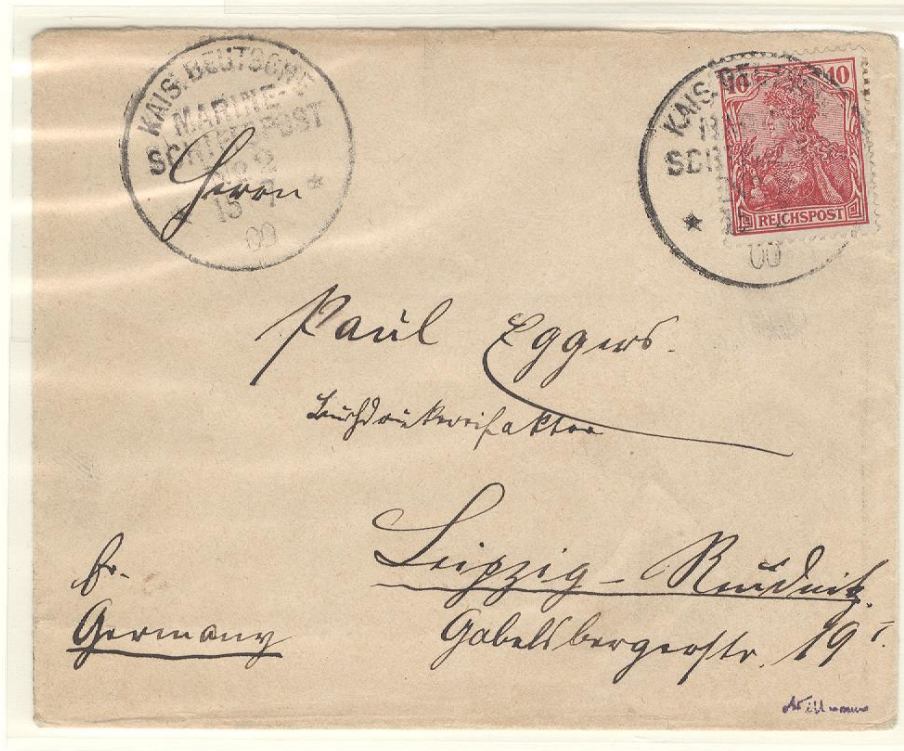 KAIS. DEUTSCHE
MARINE-
SCHIFFSPOST
No 2
15 7
00
KAIS. DEUTSCHE
SCH
00
10 10
REICHSPOST
Herrn
Paul Eggers.
Buchdruckereifaktor
Leipzig-Reudnitz.
Gabelsbergerstr. 19 I.
Germany